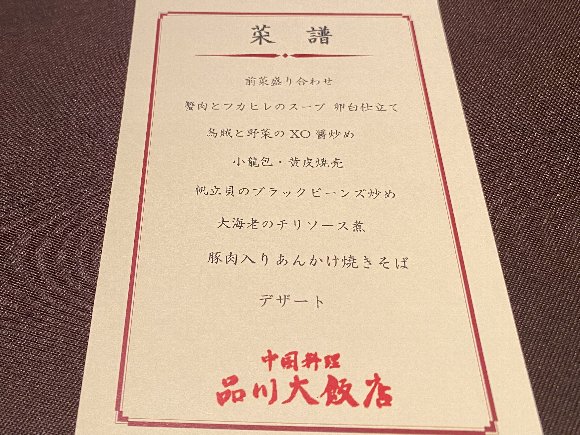 菜譜
前菜盛り合わせ
蟹肉とフカヒレのスープ 卵白仕立て
烏賊と野菜のXO醤炒め
小龍包・黄皮焼売
帆立貝のブラックビーンズ炒め
大海老のチリソース煮
豚肉入りあんかけ焼きそば
デザート
中国料理
品川大飯店